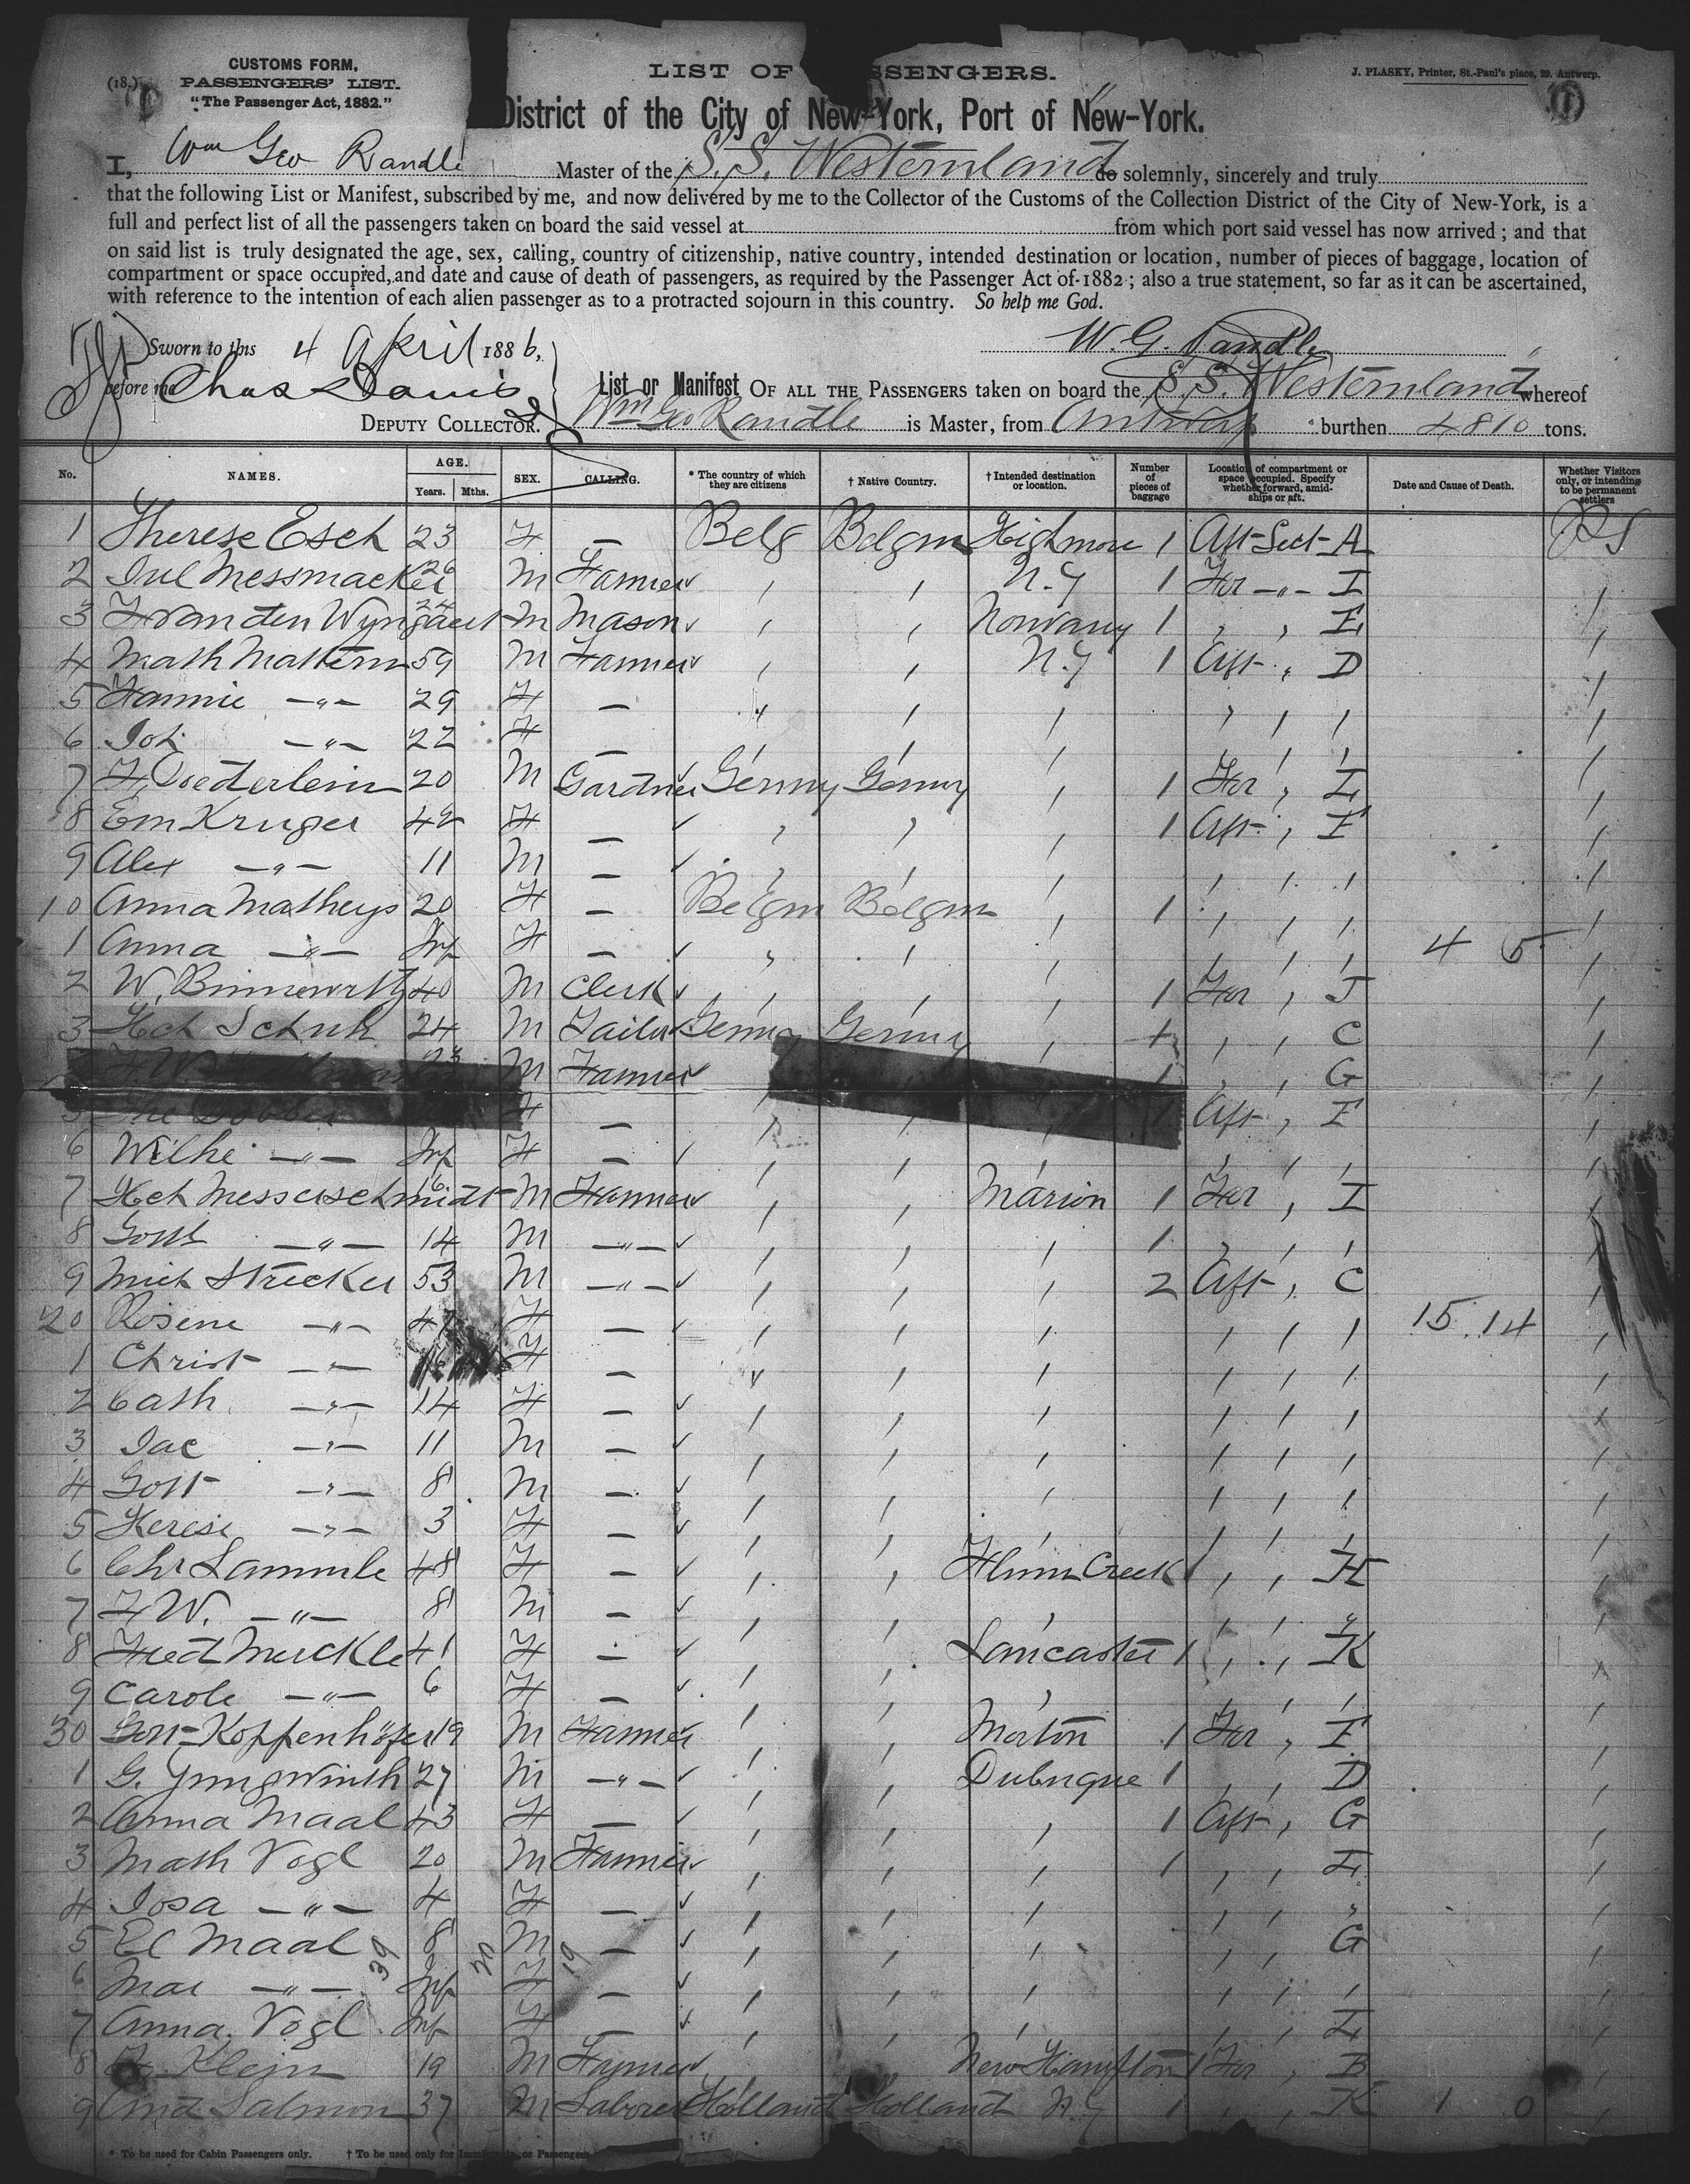 CUSTOMS FORM,
(18.) PASSENGERS' LIST.
"The Passenger Act, 1882."
LIST OF SSENGERS.
J. PLASKY, Printer, St.-Paul's place, 29. Antwerp.
District of the City of New-York, Port of New-York.
I, Wm Geo Randle Master of the S.S. Westernland do solemnly, sincerely and truly
that the following List or Manifest, subscribed by me, and now delivered by me to the Collector of the Customs of the Collection District of the City of New-York, is a
full and perfect list of all the passengers taken on board the said vessel at from which port said vessel has now arrived ; and that
on said list is truly designated the age, sex, calling, country of citizenship, native country, intended destination or location, number of pieces of baggage, location of
compartment or space occupied, and date and cause of death of passengers, as required by the Passenger Act of 1882 ; also a true statement, so far as it can be ascertained,
with reference to the intention of each alien passenger as to a protracted sojourn in this country. So help me God.
Sworn to this 4 April 1886, W. G. Randle
before me Chas Davis List or Manifest OF ALL THE PASSENGERS taken on board the S.S. Westernland whereof
DEPUTY COLLECTOR. Wm Geo Randle is Master, from Antwerp burthen 4810 tons.
No. NAMES. AGE. Years. Mths. SEX. CALLING. * The country of which they are citizens † Native Country. † Intended destination or location. Number of pieces of baggage Location of compartment or space occupied. Specify whether forward, amidships or aft. Date and Cause of Death. Whether Visitors only, or intending to be permanent settlers
1 Therese Esch 23 F — Belg Belgm Highmore 1 Aft Sect A PS
2 Jul Messmacker 26 M Farmer " " N.Y 1 For -"- I "
3 F van den Wyngaert 24 M Mason " " 1 " " E "
4 Math Mattern 59 M Farmer " " N.Y 1 Aft " D "
5 Fannie -"- 29 F — " " " " " " "
6 Joh -"- 22 F — " " " " " " "
7 F. Doederlein 20 M Gardner Germny Germny " 1 For " I "
8 Em Kruger 42 F — " " " 1 Aft " E "
9 Alex -"- 11 M — " " " " " " "
10 Anna Matheys 20 F — Belgm Belgm " 1 " " " "
1 Anna -"- Inf F — " " " " " " 4 5 "
2 W. 40 M Clerk " " " 1 For " J "
3 Hch Schuh 24 M Tailor Germny Germny " 1 " " C "
M Farmer 1 " " G "
5 F — " " " 1 Aft " E "
6 Wilhe -"- Inf F — " " " " " " "
7 Hch Messerschmidt 16 M Farmer " " Marion 1 For " I "
8 Gottl -"- 14 M -"- " " " 1 " " " "
9 Mich Strecker 53 M -"- " " " 2 Aft " C "
20 Rosine -"- 47 F — " " " " " " 15.14 "
1 Christ -"- F — " " " " " " "
2 Cath -"- 14 F — " " " " " " "
3 Jac -"- 11 M — " " " " " " "
4 Gott -"- 8 M — " " " " " " "
5 -"- 3 F — " " " " " " "
6 Chr Lammle 48 F — " " Creek 1 " " H "
7 F W. -"- 8 M — " " " " " " "
8 Fred Merckle 41 F — " " Lancaster 1 " " K "
9 Carole -"- 6 F — " " " " " " "
30 Gott Koppenhöfer 19 M Farmer " " Morton 1 For " E "
1 G. Jungwirth 27 M -"- " " Dubuque 1 " " D "
2 Anna Maal 43 F — " " " 1 Aft " G "
3 Math Vogl 20 M Farmer " " " 1 " " I "
4 Josa -"- 4 F — " " " " " " "
5 El Maal 8 M — " " " " " G "
6 Mar -"- Inf F — " " " " " " "
7 Anna Vogl Inf F — " " " " " I "
8 Klein 19 M Farmer " " New Hampton 1 For " B "
9 And Salmon 37 M Laborer Holland Holland N.Y 1 " " K 1 0 "
39 20 19
* To be used for Cabin Passengers only. † To be used only for Immigrants, or Passengers